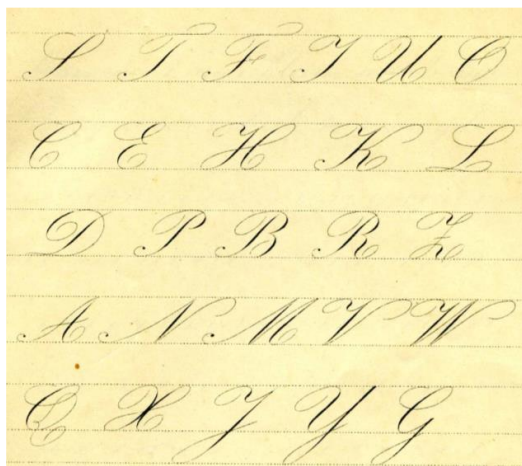 S T F I U O
C E H K L
D P B R Z
A N M V W
Q X J Y G